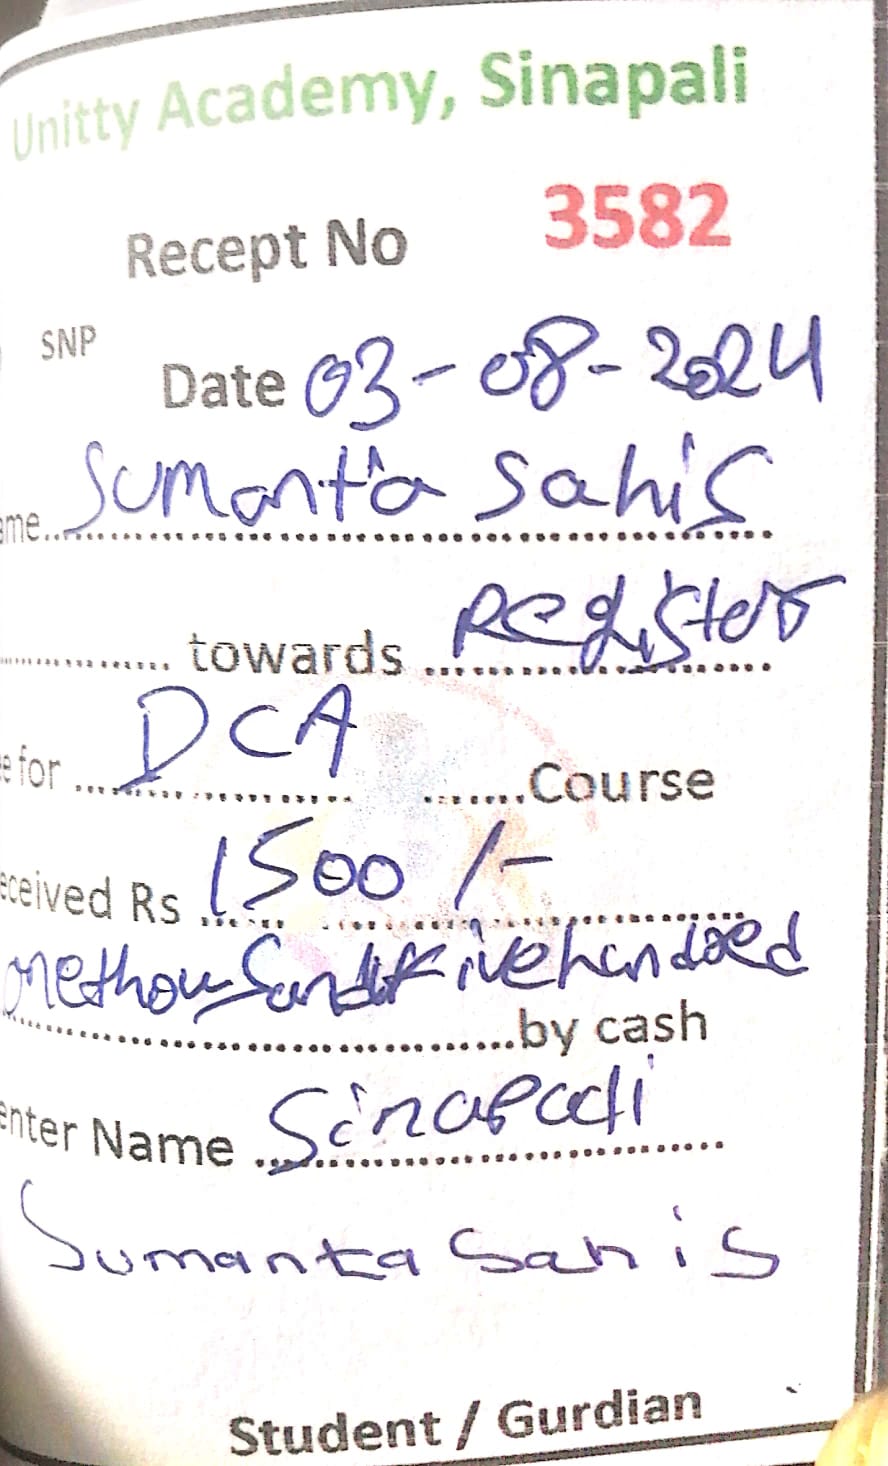 Unitty Academy, Sinapali
Recept No 3582
SNP
Date 03-08-2024
ame Sumanta Sahis
towards Register
e for DCA Course
eceived Rs 1500/-
onethousandfivehundred
by cash
enter Name Sinapali
Sumanta Sahis
Student / Gurdian